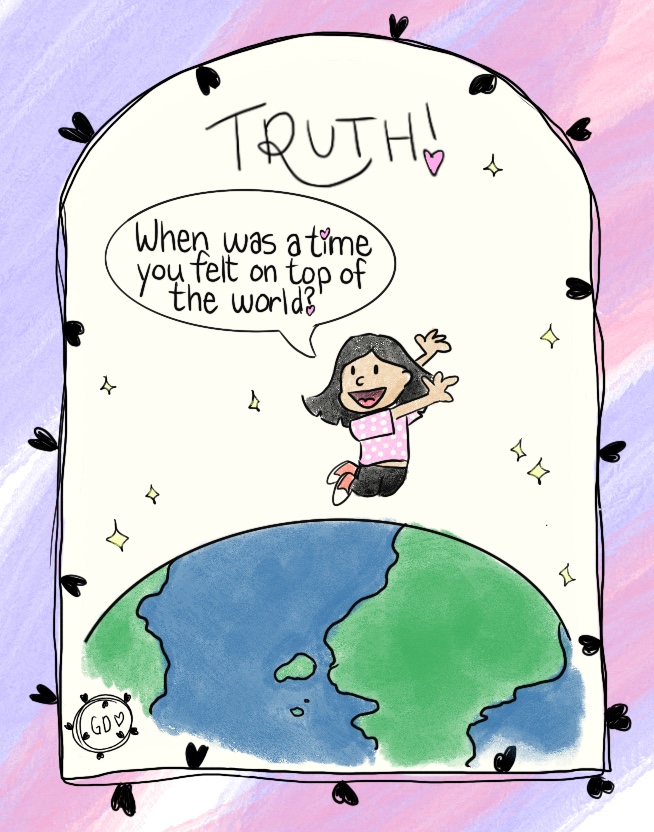 TRUTH!
When was a time
you felt on top of
the world?
GD♡